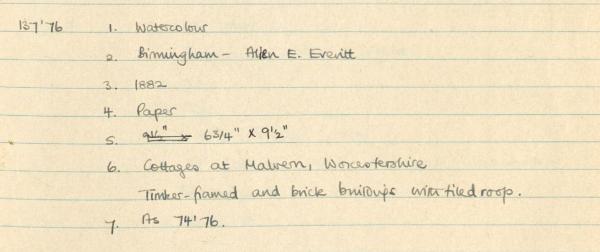 137'76 1. Watercolour
2. Birmingham - Allen E. Everitt
3. 1882
4. Paper
5. 9½" x 6 3/4" x 9½"
6. Cottages at Malvern, Worcestershire
Timber-framed and brick buildings with tiled roofs.
7. As 74'76.